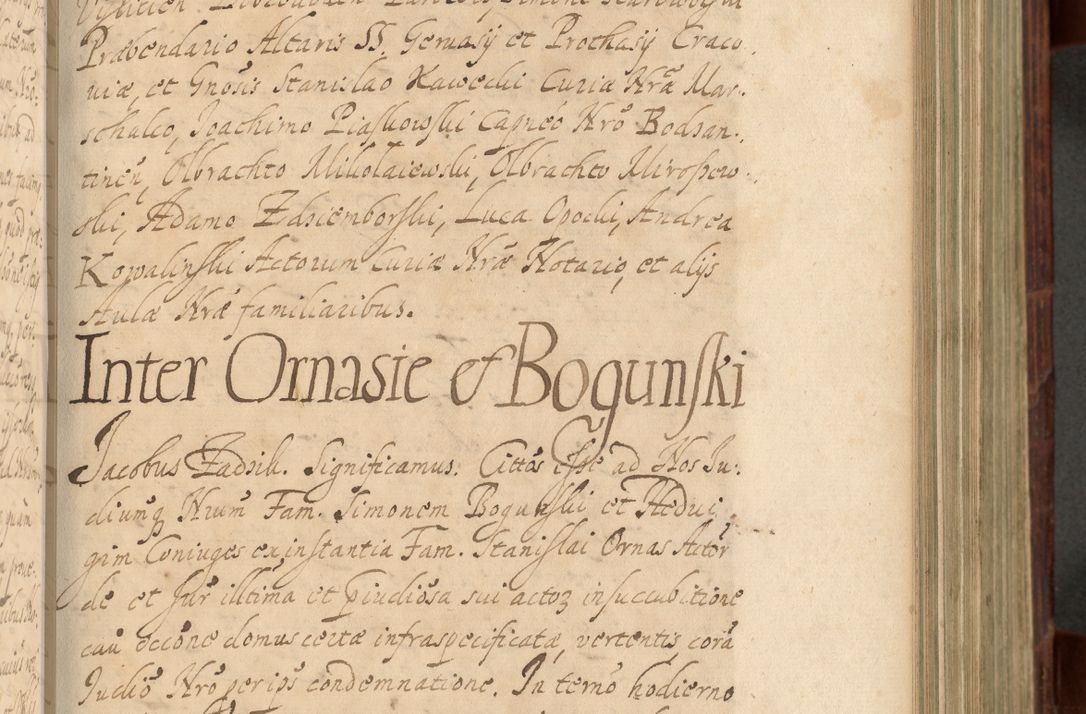 Præbendario Altaris SS. Geruasij et Prothasij Craco.
uiæ, et Gnosis Stanislao Kawecki Curiæ Nræ Mar-
schalco, Joachimo Piaskowski Capneo Nro Bodzan.
tinen, Olbrachto Mikolaiewski, Olbrachto Miroszew-
ski, Adamo Zdziemborski, Luca Opocki, Andrea
Kowalinski Actorum Curiæ Nræ Notario, et alijs
Aulæ Nræ familiaribus.
Inter Ornasie et Bogunski
Jacobus Zadzik. Significamus. Cittos esse ad Nos Ju-
diumq Nrum Fam. Simonem Bogunski et Hedui
gim Coniuges ex instantia Fam. Stanislai Ornas Actor
de et sur illtima et piudiosa sui actoz in succubitione
cau occone domus certæ infraspecificatæ, vertentis corã
Judio Nro per ipos condemnatione. In termo hodierno